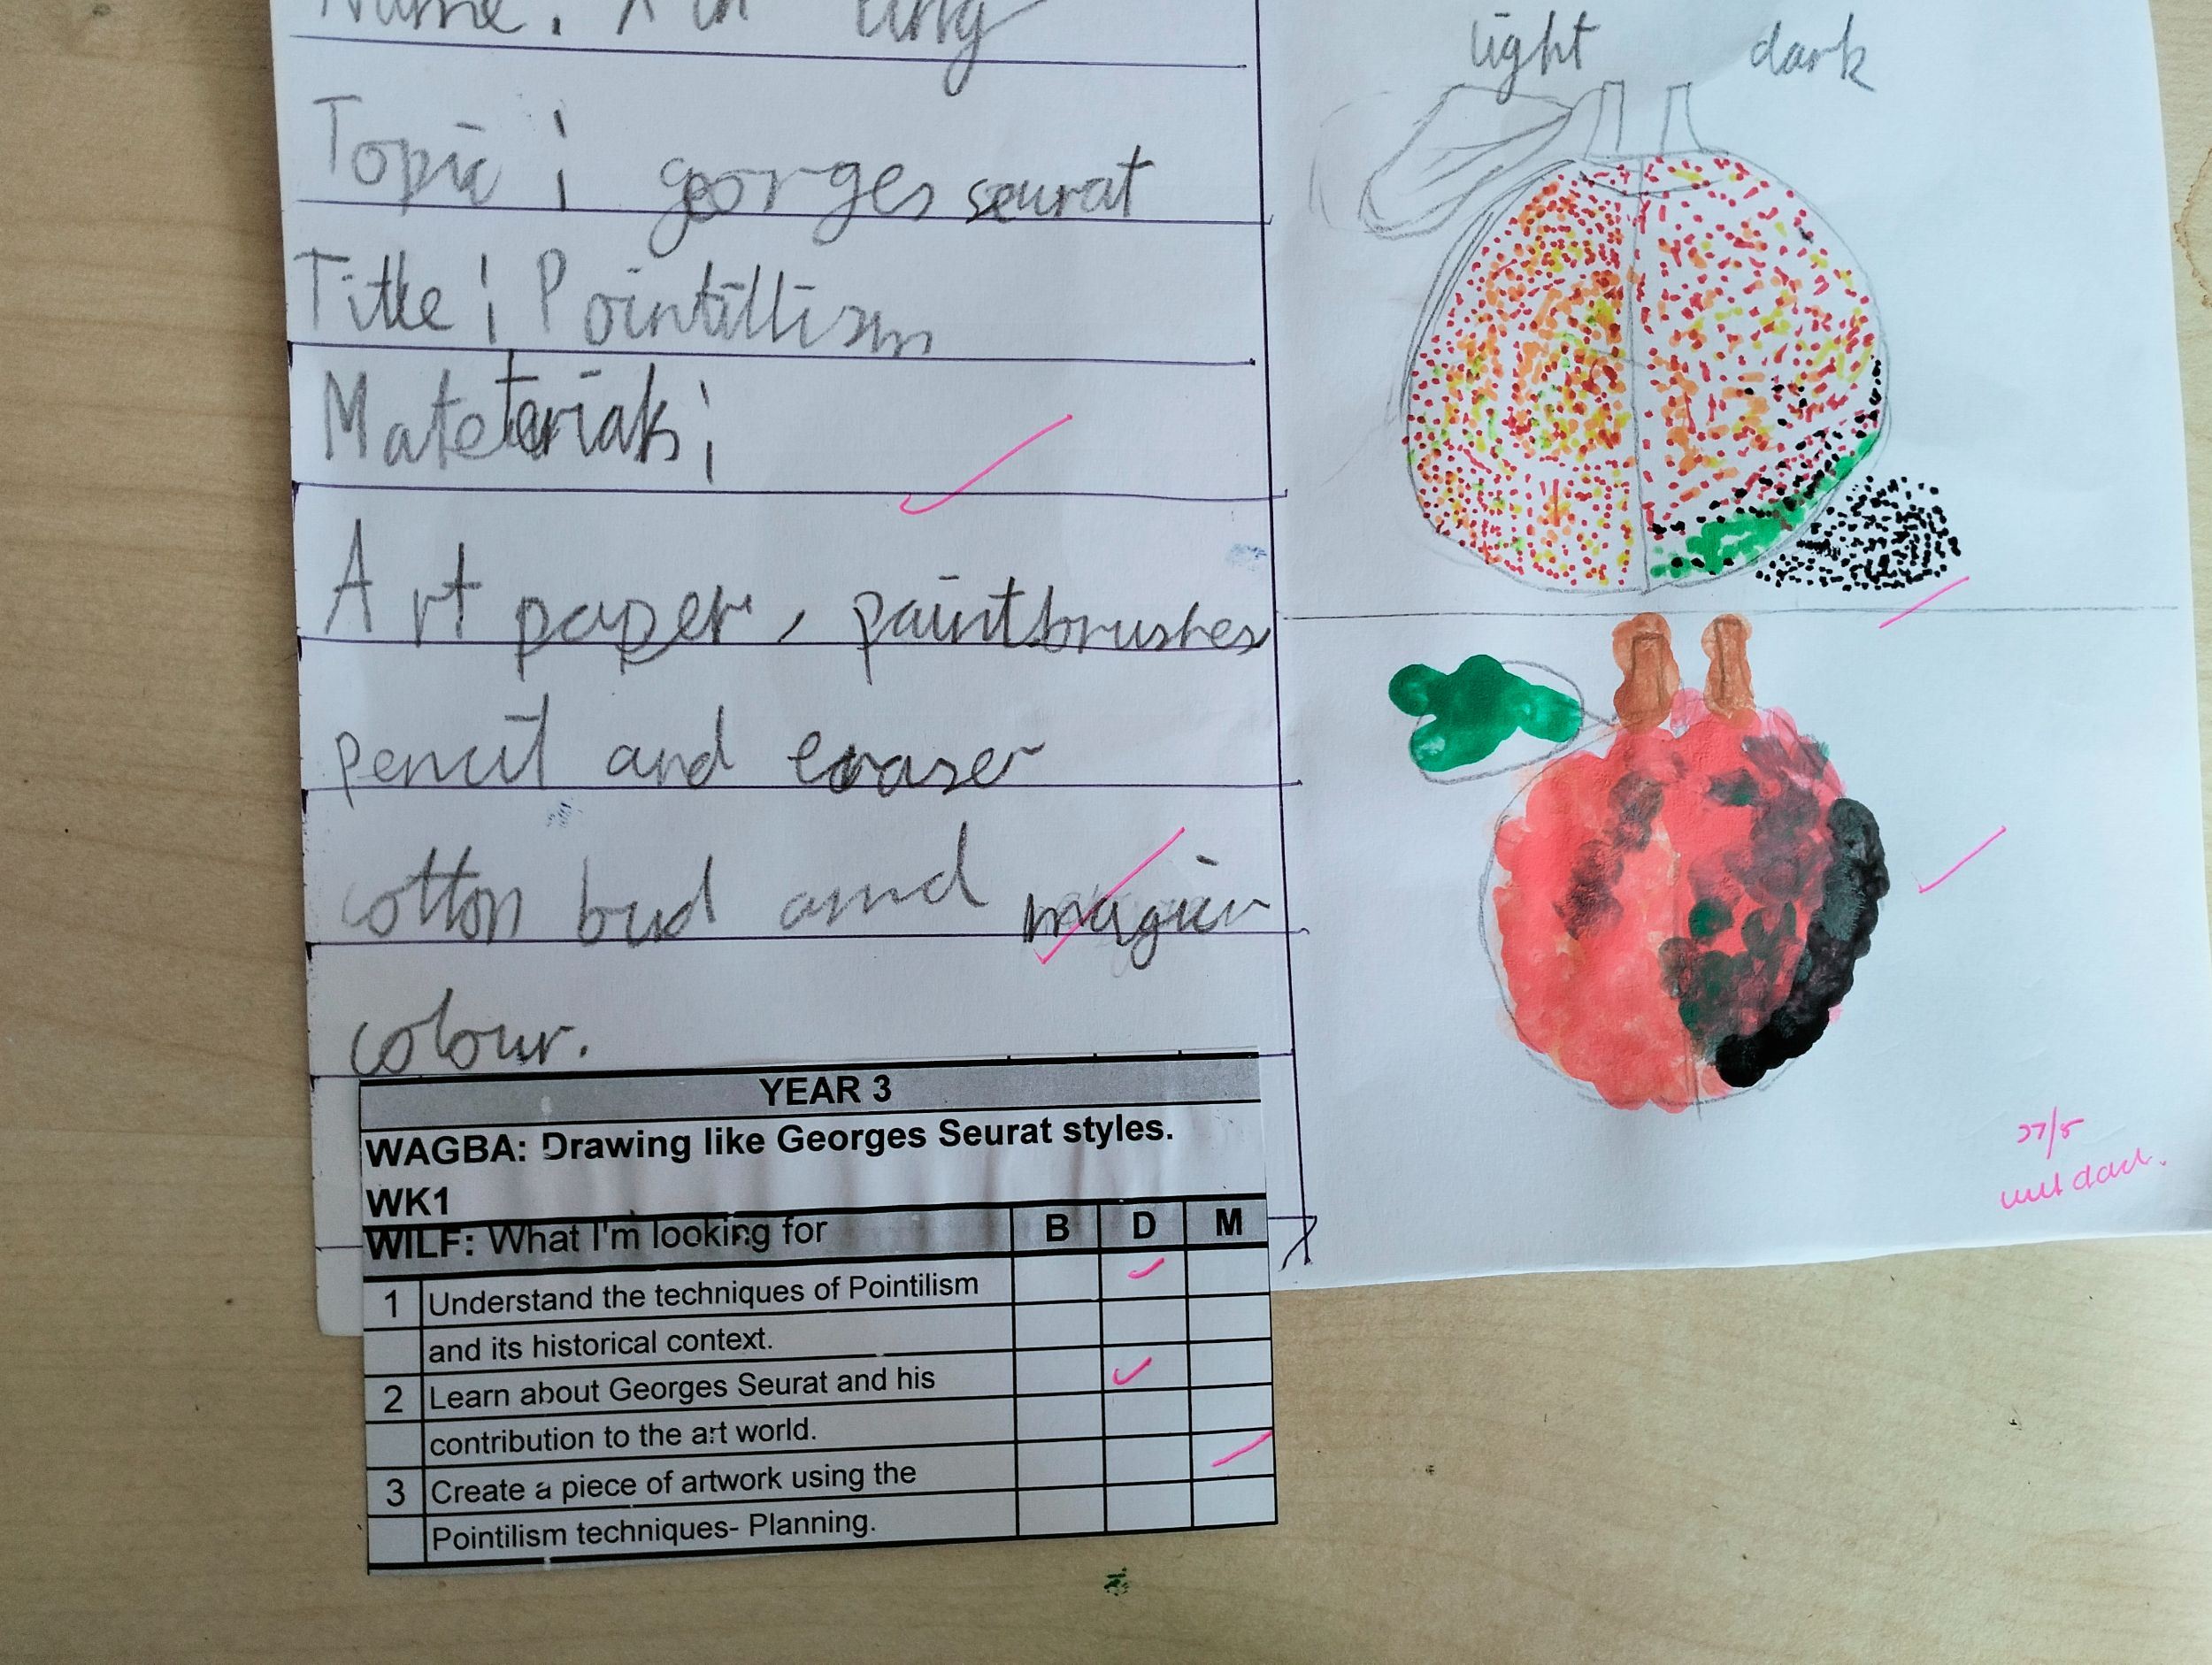 Name: Xin ling
Topic: georges seurat
Title: Pointillism
Mateterials:
Art paper, paintbrushes
pencil and eraser
cotton bud and magic
colour.
light dark
27/5
well done.
YEAR 3
WAGBA: Drawing like Georges Seurat styles.
WK1
WILF: What I'm looking for B D M
1 Understand the techniques of Pointilism
and its historical context.
2 Learn about Georges Seurat and his
contribution to the art world.
3 Create a piece of artwork using the
Pointilism techniques- Planning.